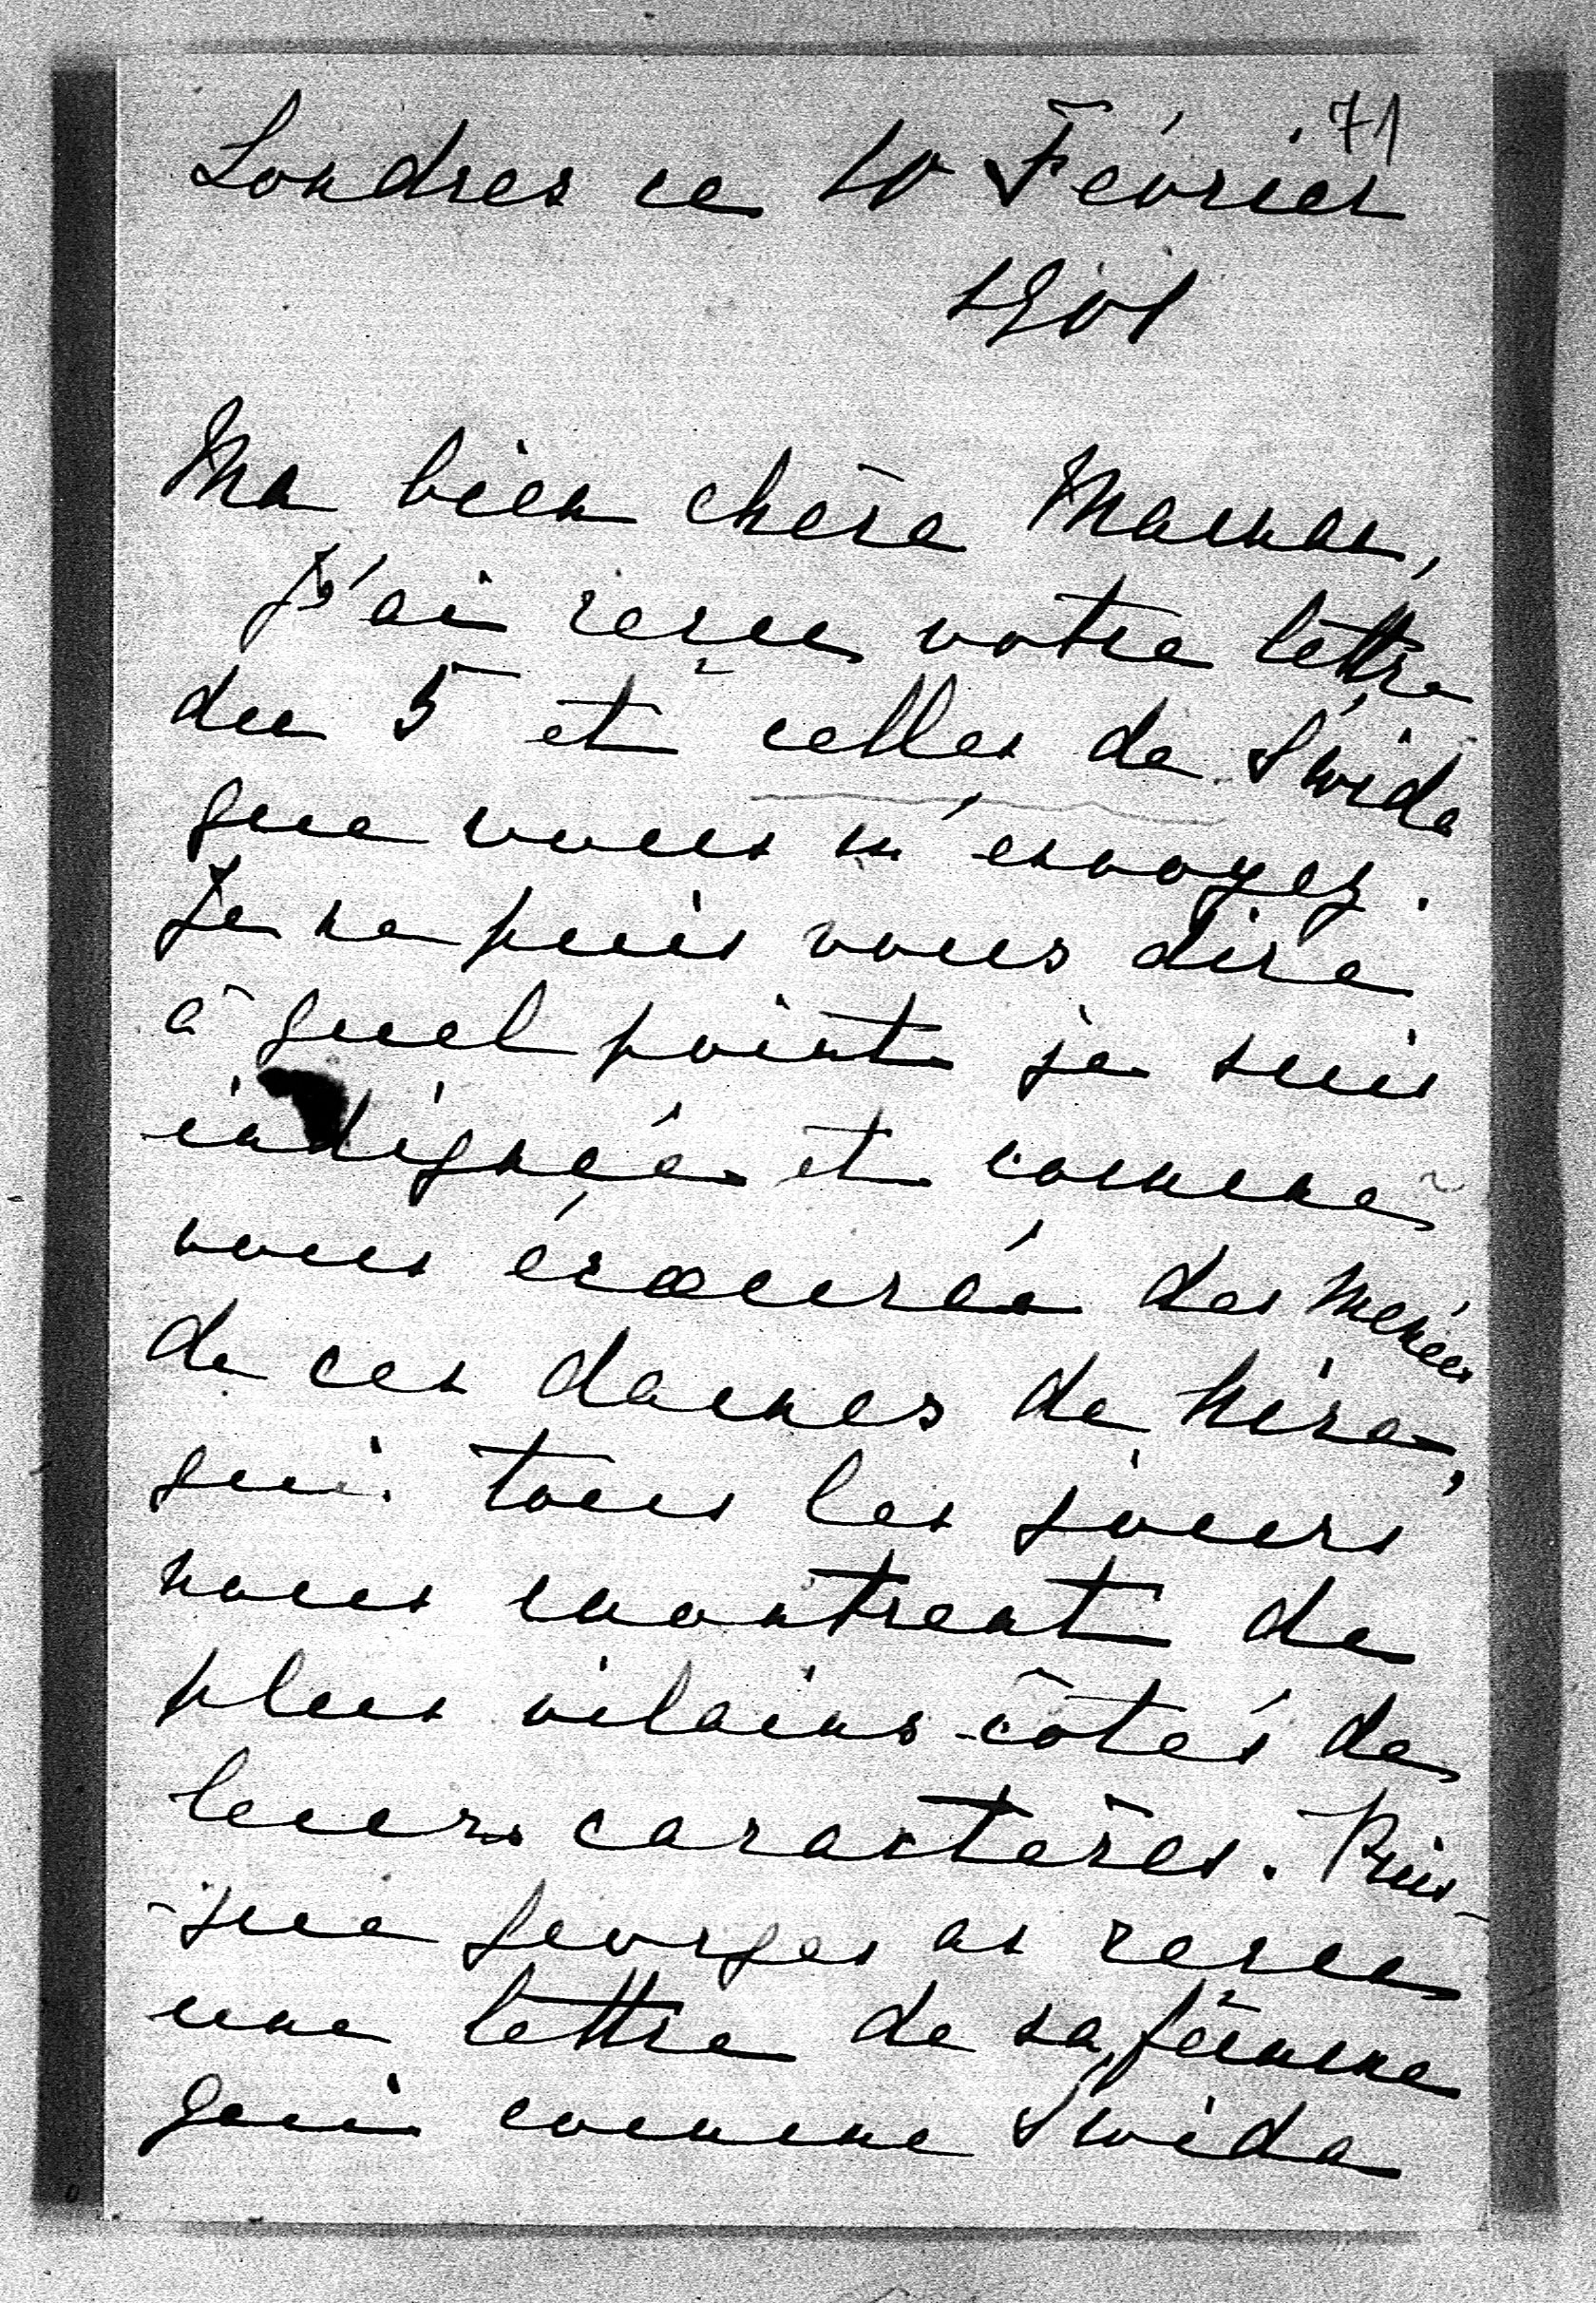 71
Londres ce 10 Février
1901
Ma bien chère Maman,
J'ai reçu votre lettre
du 5 et celles de Swida
que vous m'envoyez.
Je ne puis vous dire
à quel point je suis
indignée et comme
vous écœurée des menées
de ces dames de
qui tous les jours
nous montrent de
plus vilains côtés de
leurs caractères. Puis-
-que Georges as reçu
une lettre de sa femme
qui comme Swida